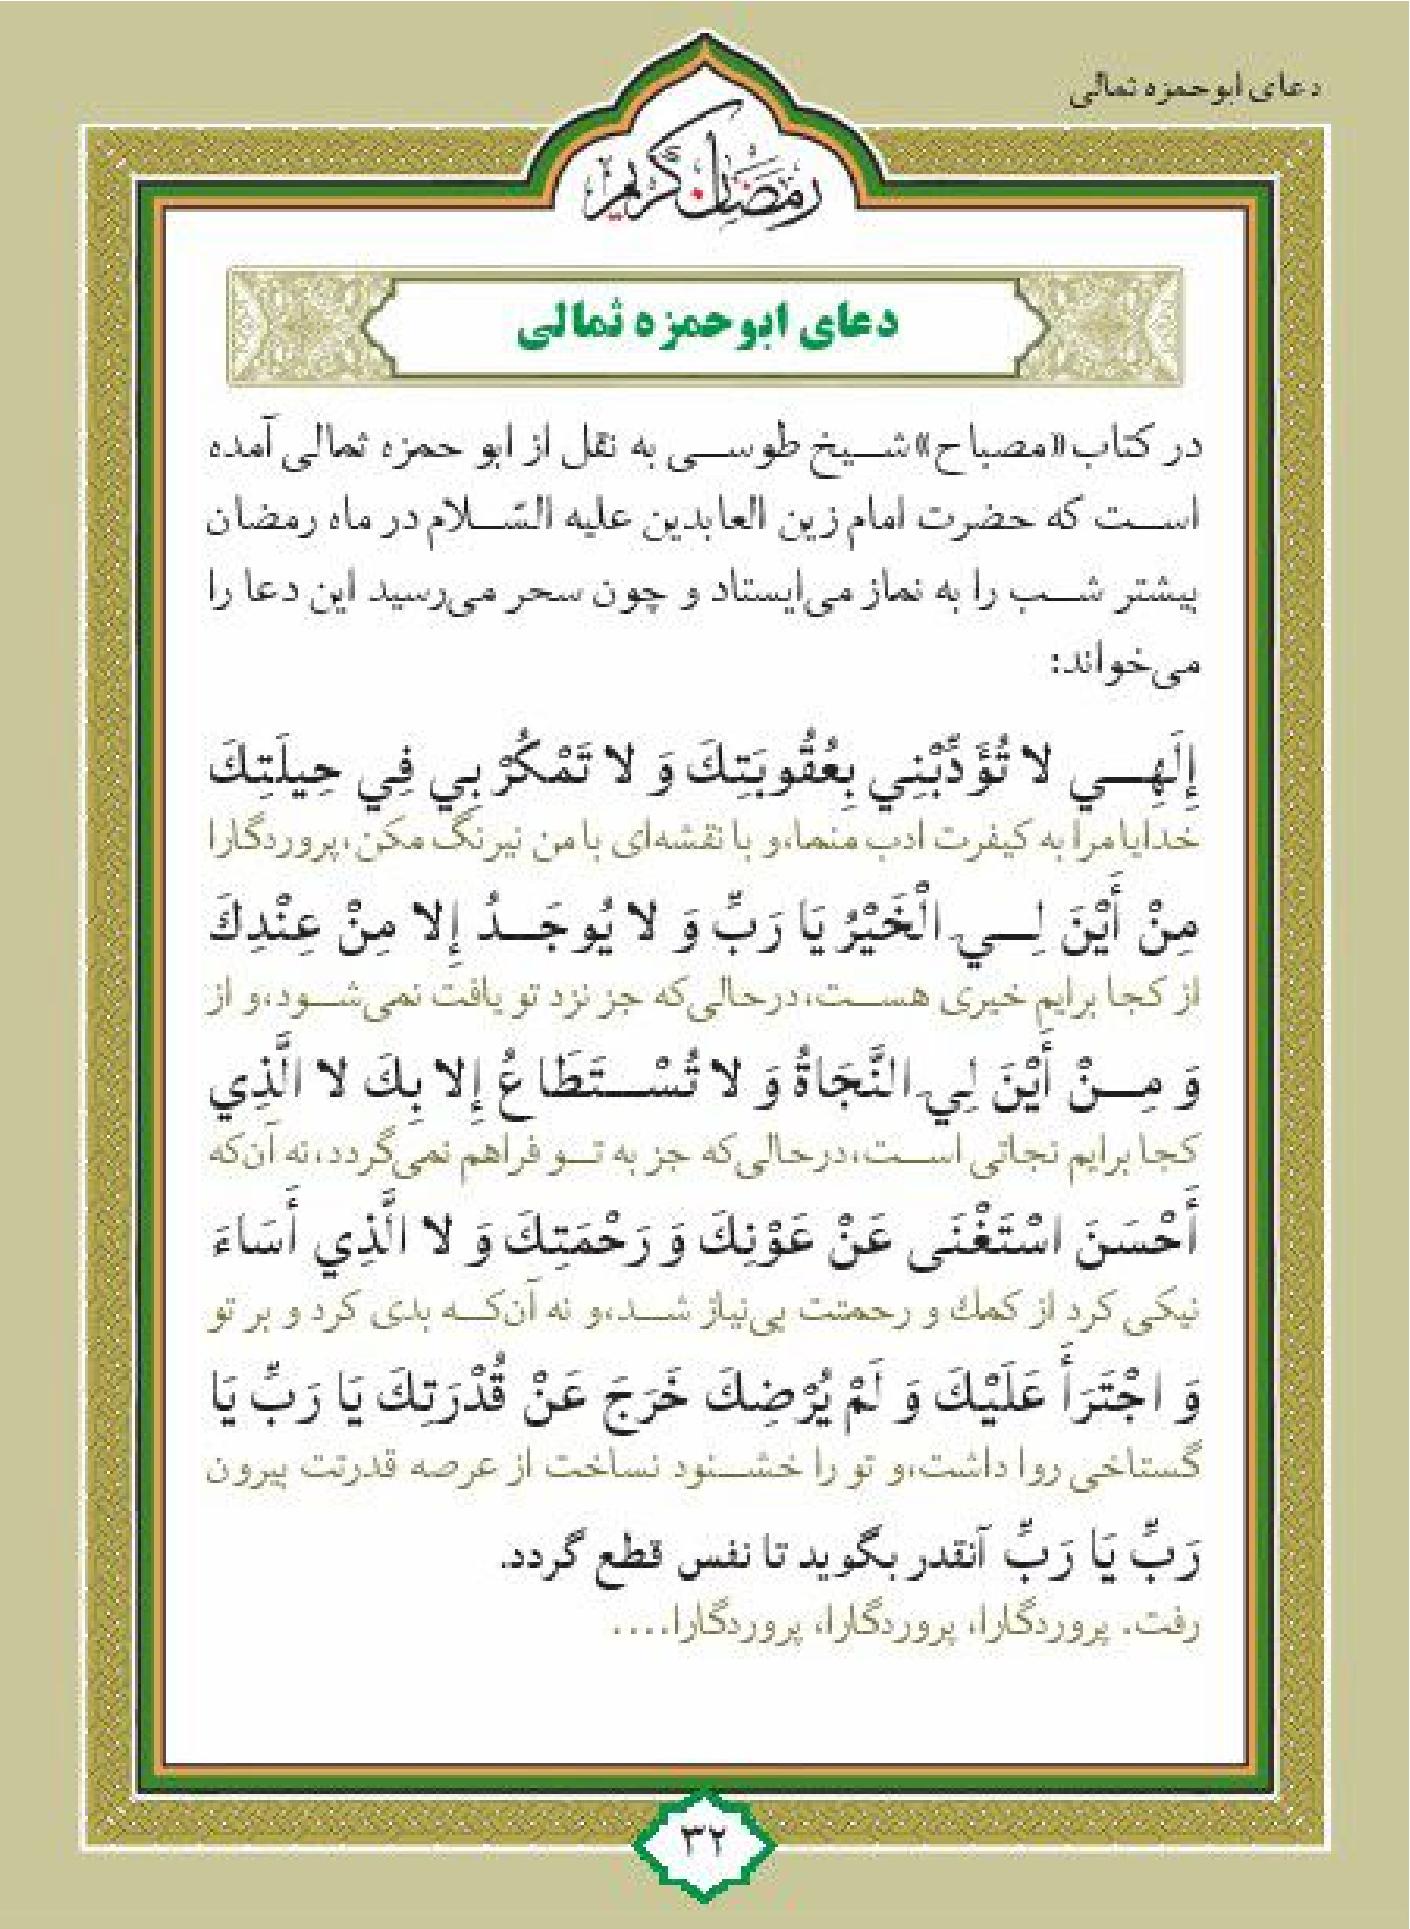 دعای ابوحمزه ثمالی
رمضان کریم
دعای ابوحمزه ثمالی
در کتاب «مصباح» شیخ طوسی به نقل از ابو حمزه ثمالی آمده
است که حضرت امام زین العابدین علیه السّلام در ماه رمضان
بیشتر شب را به نماز می‌ایستاد و چون سحر می‌رسید این دعا را
می‌خواند:
إِلَهِي لا تُؤَدِّبْنِي بِعُقُوبَتِكَ وَ لا تَمْكُرْ بِي فِي حِيلَتِكَ
خدایا مرا به کیفرت ادب منما، و با نقشه‌ای با من نیرنگ مکن، پروردگارا
مِنْ أَيْنَ لِيَ الْخَيْرُ يَا رَبِّ وَ لا يُوجَدُ إِلا مِنْ عِنْدِكَ
از کجا برایم خیری هست، درحالی‌که جز نزد تو یافت نمی‌شود، و از
وَ مِنْ أَيْنَ لِيَ النَّجَاةُ وَ لا تُسْتَطَاعُ إِلا بِكَ لا الَّذِي
کجا برایم نجاتی است، درحالی‌که جز به تو فراهم نمی‌گردد، نه آن‌که
أَحْسَنَ اسْتَغْنَى عَنْ عَوْنِكَ وَ رَحْمَتِكَ وَ لا الَّذِي أَسَاءَ
نیکی کرد از کمك و رحمتت بی‌نیاز شد، و نه آن‌که بدی کرد و بر تو
وَ اجْتَرَأَ عَلَيْكَ وَ لَمْ يُرْضِكَ خَرَجَ عَنْ قُدْرَتِكَ يَا رَبِّ يَا
گستاخی روا داشت، و تو را خشنود نساخت از عرصه قدرتت بیرون
رَبِّ يَا رَبِّ آنقدر بگوید تا نفس قطع گردد.
رفت. پروردگارا، پروردگارا، پروردگارا....
۳۲